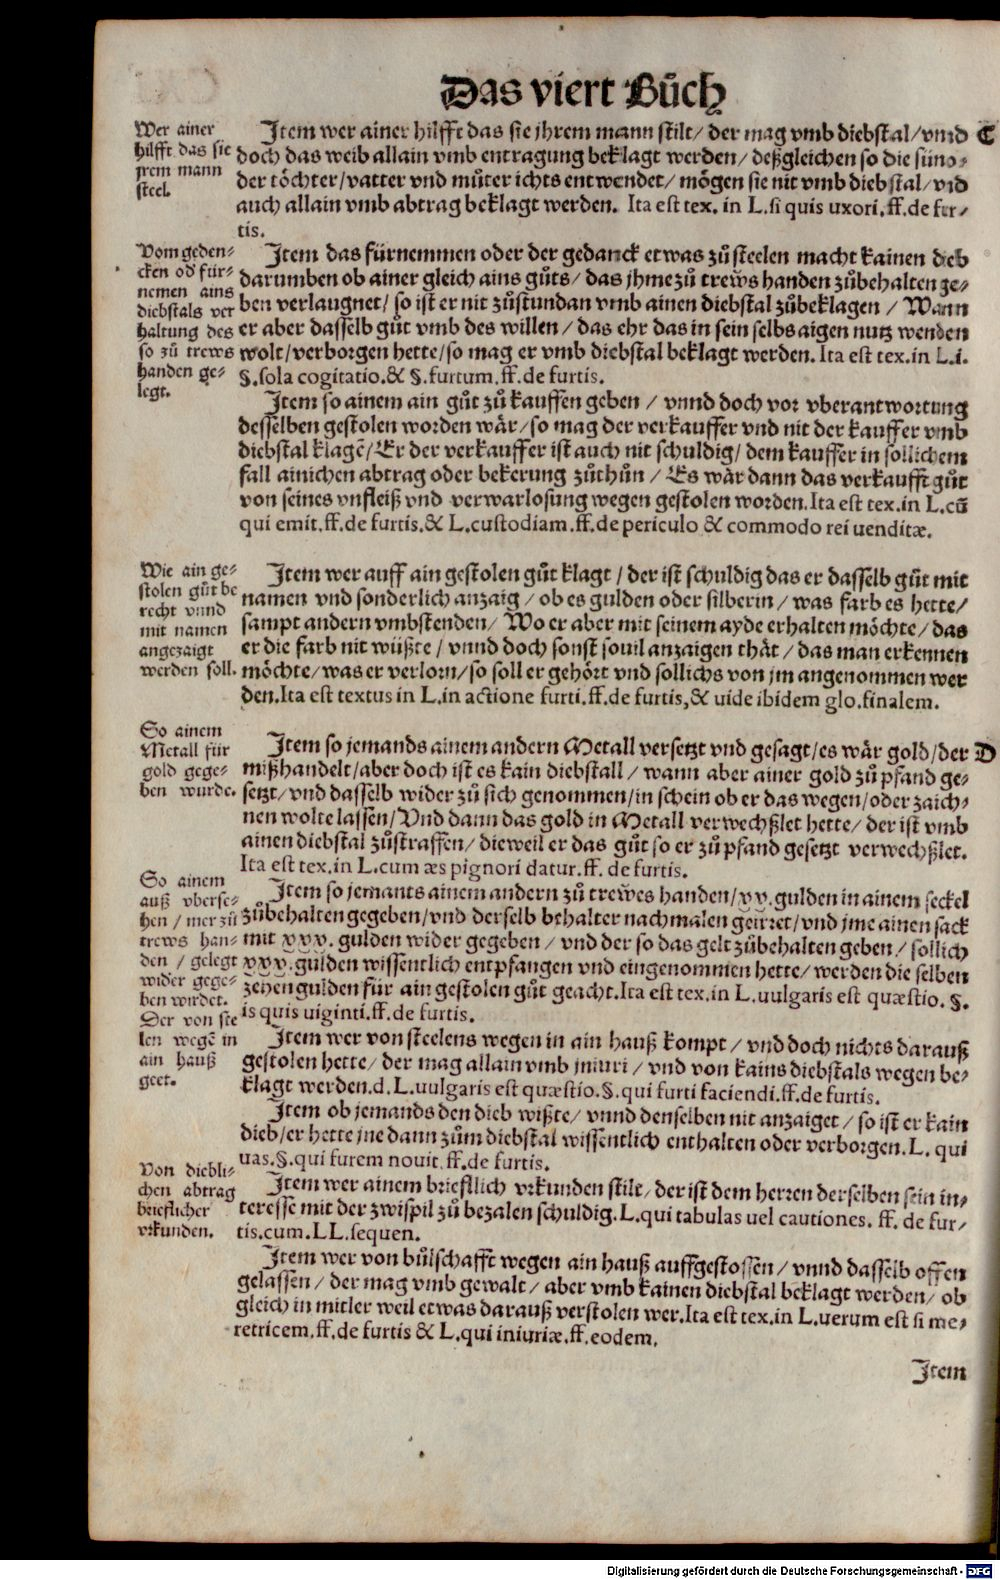 Das viert Bůch
Wer ainer
hilfft das sie
jrem mann
steel.
Item wer ainer hilfft das sie jhrem mann stilt/ der mag vmb diebstal/vnnd
C
doch das weib allain vmb entragung beklagt werden/ deßgleichen so die sün o-
der töchter/vatter vnd můter ichts entwendet/ mögen sie nit vmb diebstal/vnd
auch allain vmb abtrag beklagt werden. Ita est tex. in L.si quis uxori.ff.de fur/
tis.
Vom geden-
cken od für-
nemen ains
diebstals ver
haltung des
so zů trews
handen ge-
legt.
Item das fürnemmen oder der gedanck etwas zů steelen macht kainen dieb
darumben ob ainer gleich ains gůts/ das jhme zů trew̃s handen zůbehalten ge-
ben verlaugnet/ so ist er nit zůstundan vmb ainen diebstal zůbeklagen/ Wann
er aber dasselb gůt vmb des willen/ das ehr das in sein selbs aigen nutz wenden
wolt/verborgen hette/so mag er vmb diebstal beklagt werden. Ita est tex.in L.i.
§.sola cogitatio.& §.furtum.ff.de furtis.
Item so ainem ain gůt zů kauffen geben/ vnnd doch vor vberantwortung
desselben gestolen worden wär/so mag der verkauffer vnd nit der kauffer vmb
diebstal klagẽ/Er der verkauffer ist auch nit schuldig/ dem kauffer in sollichem
fall ainichen abtrag oder bekerung zůthůn/ Es wär dann das verkaufft gůt
von seines vnfleiß vnd verwarlosung wegen gestolen worden.Ita est tex.in L.cũ
qui emit.ff.de furtis.& L.custodiam.ff.de periculo & commodo rei venditæ.
Wie ain ge-
stolen gůt be
recht vnnd
mit namen
angezaigt
werden soll.
Item wer auff ain gestolen gůt klagt/ der ist schuldig das er dasselb gůt mit
namen vnd sonderlich anzaig/ ob es gulden oder silberin/ was farb es hette/
sampt andern vmbstenden/ Wo er aber mit seinem ayde erhalten möchte/ das
er die farb nit wüßte/ vnnd doch sonst souil anzaigen thät/ das man erkennen
möchte/was er verlorn/so soll er gehört vnd sollichs von jm angenommen wer
den.Ita est textus in L.in actione furti.ff.de furtis,& uide ibidem glo.finalem.
So ainem
Metall für
gold gege-
ben wurde.
Item so jemands ainem andern Metall versetzt vnd gesagt/es wär gold/der
D
mißhandelt/aber doch ist es kain diebstall/ wann aber ainer gold zů pfand ge-
setzt/vnd dasselb wider zů sich genommen/in schein ob er das wegen/oder zaich-
nen wolte lassen/Vnd dann das gold in Metall verwechßlet hette/ der ist vmb
ainen diebstal zůstraffen/ dieweil er das gůt so er zů pfand gesetzt verwechßlet.
Ita est tex.in L.cum æs pignori datur.ff. de furtis.
So ainem
auß vberse-
hen/ mer zů
trews han-
den/ gelegt
wider gege-
ben wirdet.
Item so jemants ainem andern zů trew̃es handen/xx.gulden in ainem seckel
zůbehalten gegeben/vnd derselb behalter nachmalen geirret/vnd jme ainen sack
mit xxx. gulden wider gegeben/ vnd der so das gelt zůbehalten geben/ sollich
xxx.gulden wissentlich entpfangen vnd eingenommen hette/ werden die selben
zehengulden für ain gestolen gůt geacht.Ita est tex.in L.uulgaris est quæstio. §.
is quis uiginti.ff.de furtis.
Der von ste
len wegẽ in
ain hauß
geet.
Item wer von steelens wegen in ain hauß kompt/ vnd doch nichts darauß
gestolen hette/ der mag allain vmb iniuri/ vnd von kains diebstals wegen be-
klagt werden.d.L.uulgaris est quæstio.§.qui furti faciendi.ff.de furtis.
Item ob jemands den dieb wißte/ vnnd denselben nit anzaiget/ so ist er kain
dieb/er hette jne dann zům diebstal wissentlich enthalten oder verborgen.L. qui
uas.§.qui furem novit.ff.de furtis.
Von diebli-
chen abtrag
brieflicher
vrkunden.
Item wer ainem briefllich vrkunden stilt/ der ist dem herren derselben sein in-
teresse mit der zwispil zů bezalen schuldig.L.qui tabulas uel cautiones. ff. de fur/
tis.cum.LL.sequen.
Item wer von bůlschafft wegen ain hauß auffgestossen/ vnnd dasselb offen
gelassen/ der mag vmb gewalt/ aber vmb kainen diebstal beklagt werden/ ob
gleich in mitler weil etwas darauß verstolen wer.Ita est tex.in L.verum est si me-
retricem.ff.de furtis & L.qui iniuriæ.ff.eodem.
Item
Digitalisierung gefördert durch die Deutsche Forschungsgemeinschaft - DFG